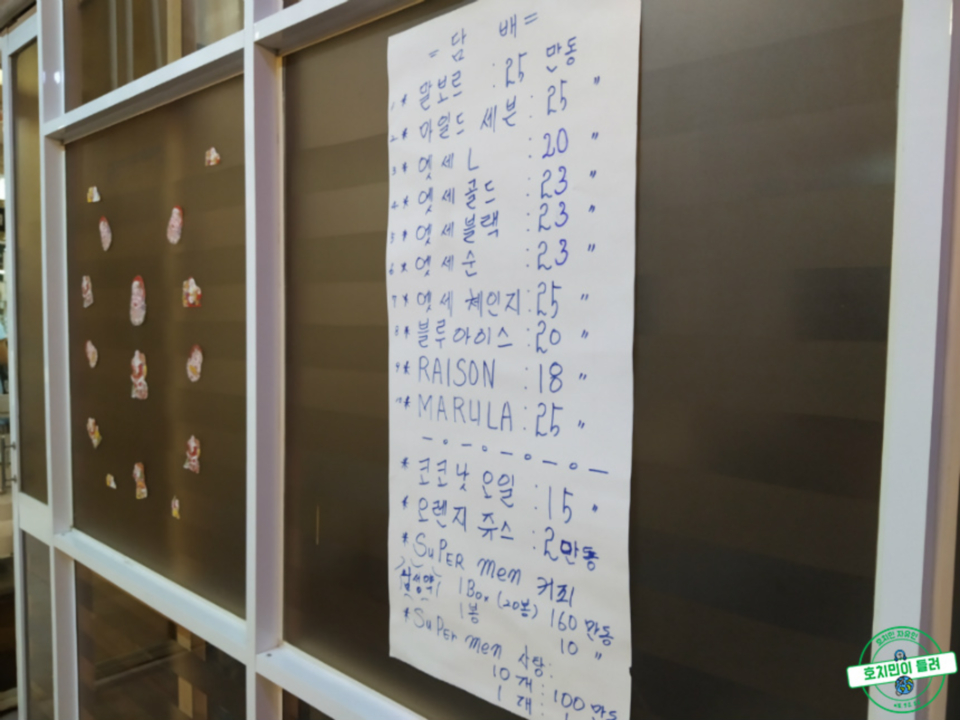 = 담 배 =
1* 말보르 : 25 만동
2* 마일드 세븐 : 25 "
3* 엣세 L : 20 "
4* 엣세 골드 : 23 "
5* 엣세 블랙 : 23 "
6* 엣세 순 : 23 "
7* 엣세 체인지 : 25 "
8* 블루 아이스 : 20 "
9* RAISON : 18 "
* MARULA : 25 "
* 코코낫 오일 : 15 "
* 오렌지 쥬스 : 2만동
* SuPER men 커피
1 Box (20봉) 160 만동
1봉 10 "
* SuPer men 사탕 :
10 개 : 100 만동
1 개 :
호치민이 들려